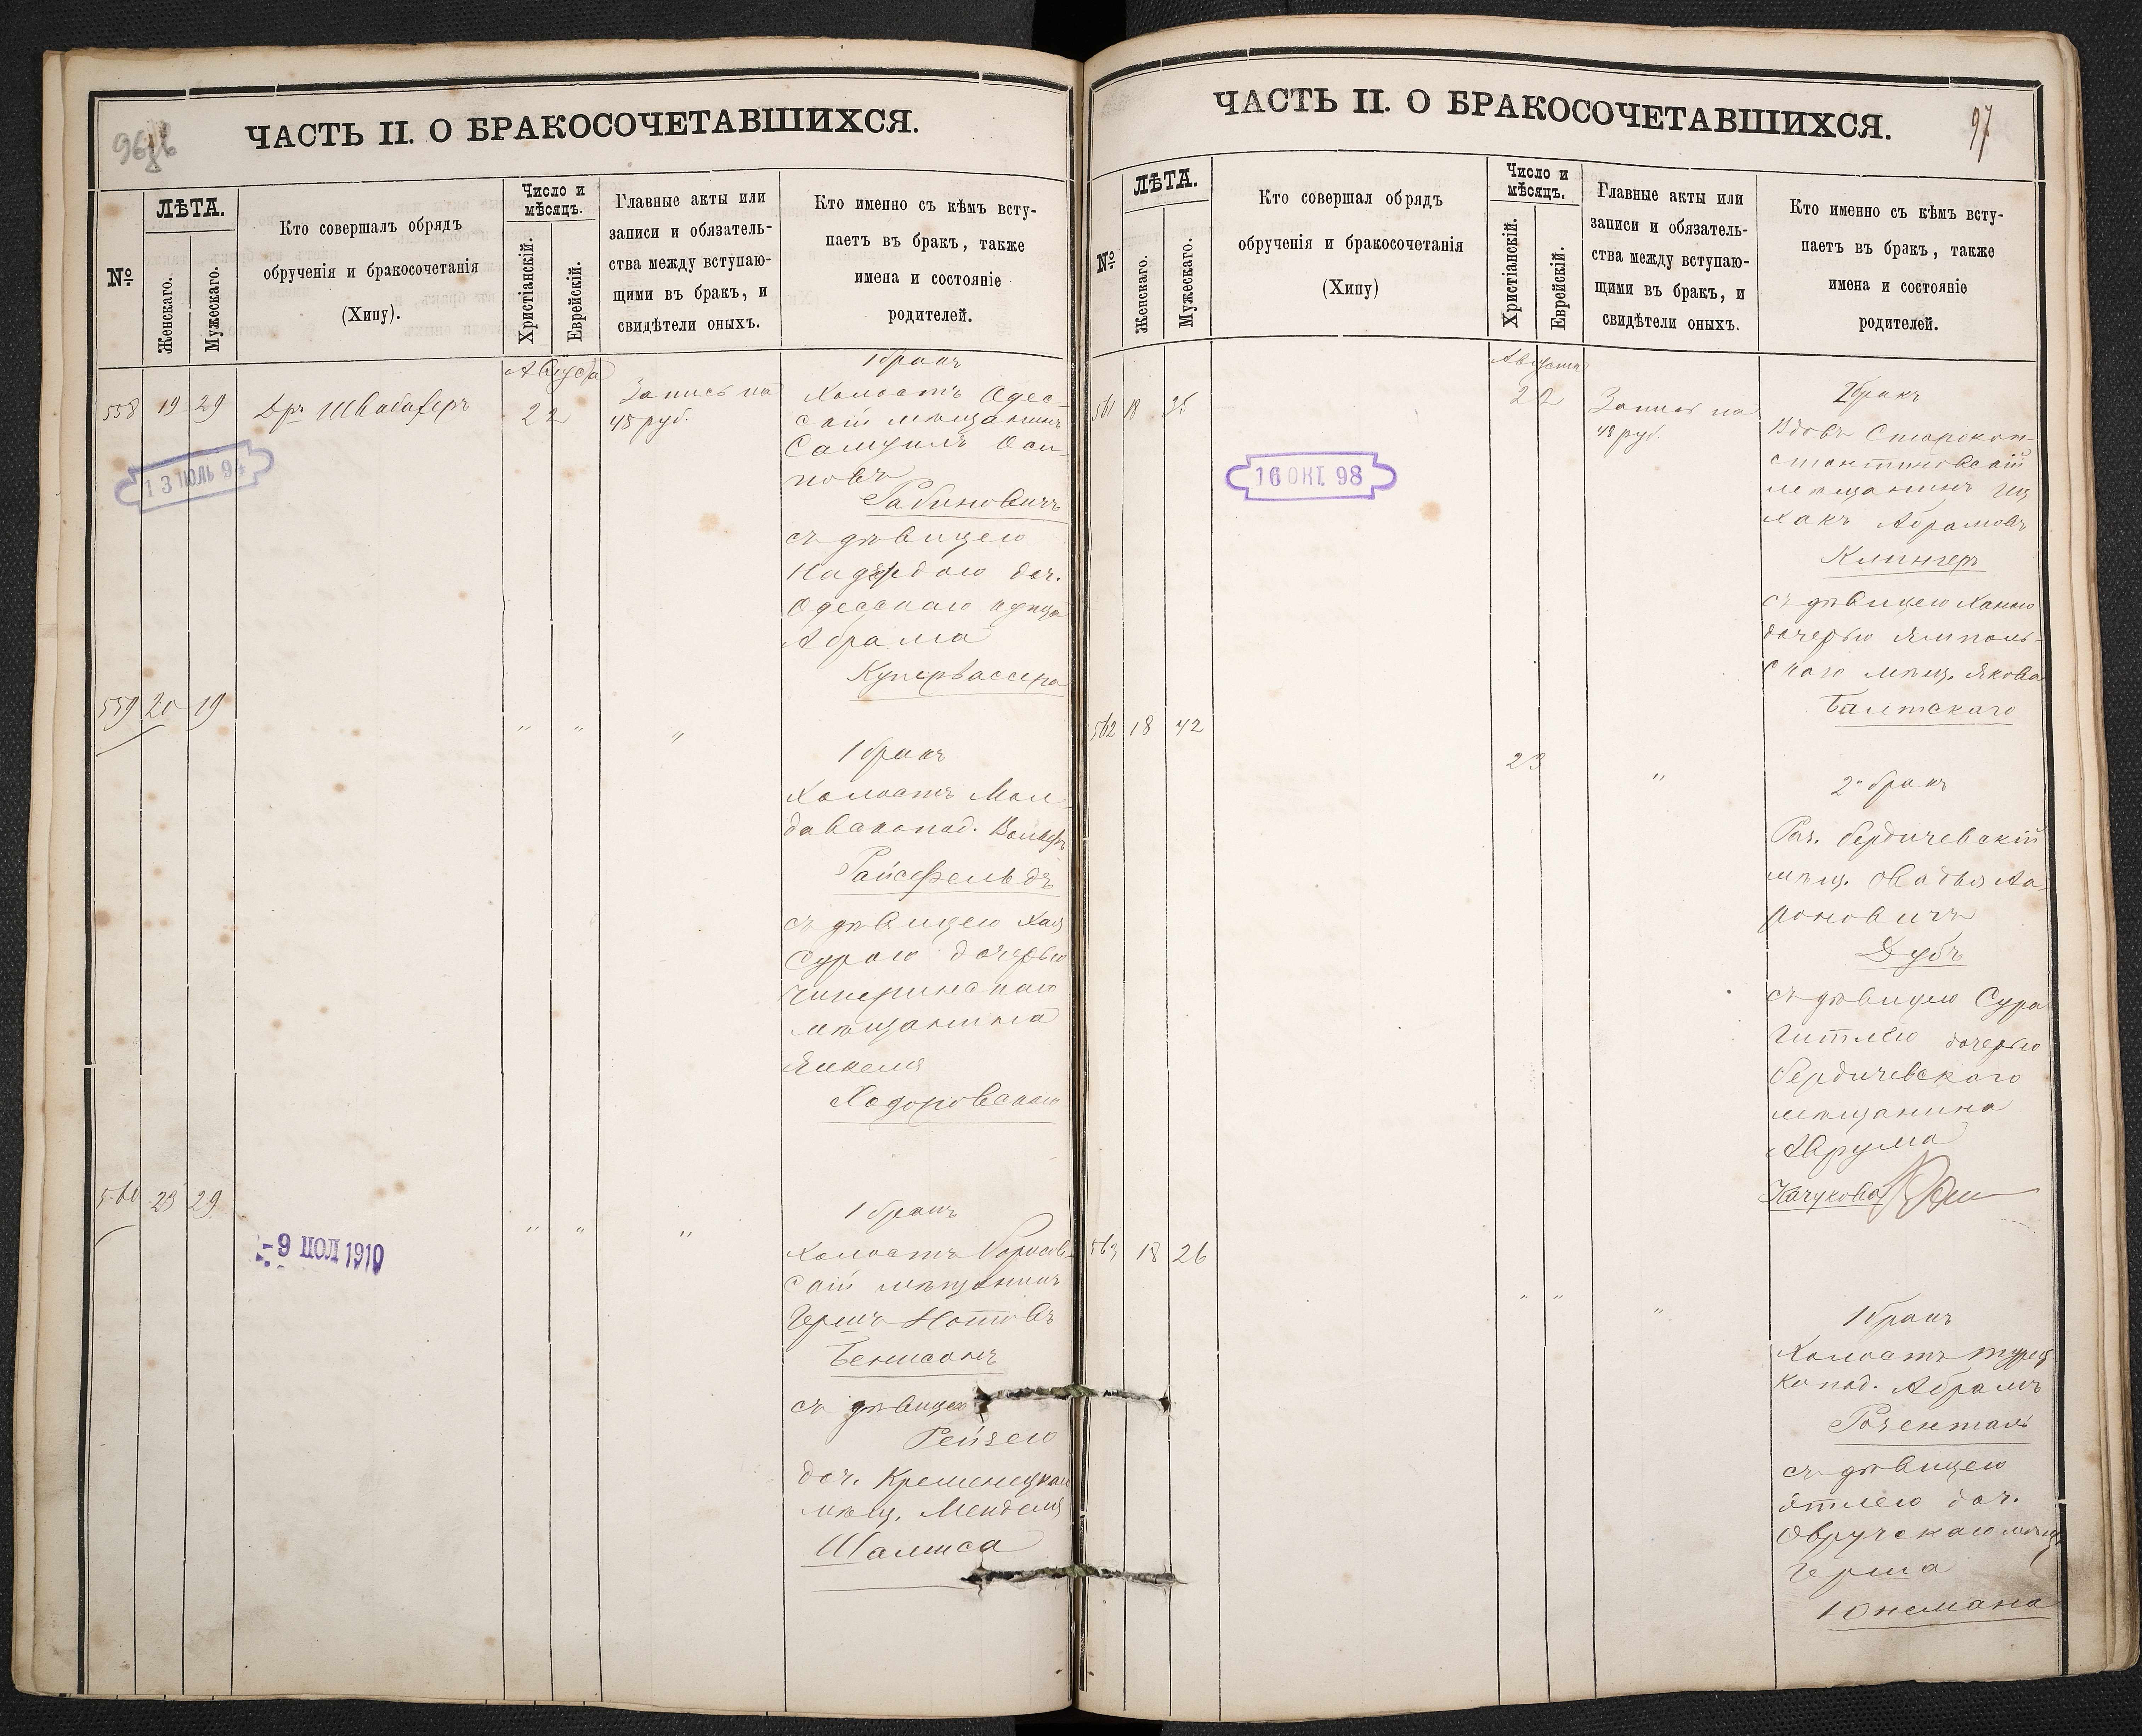 ЧАСТЬ II. О БРАКОСОЧЕТАВШИХСЯ.
№
ЛѢТА.
Женскаго.
Мужескаго.
Кто совершалъ обрядъ
обрученія и бракосочетанія
(Хипу).
Число и
мѣсяцъ.
Христіанскій.
Еврейскій.
Главные акты или
записи и обязатель-
ства между вступаю-
щими въ бракъ, и
свидѣтели оныхъ.
Кто именно съ кѣмъ всту-
паетъ въ бракъ, также
имена и состояніе
родителей.
558 19 29 Др. Швабахеръ
Августа
22
Запись на
45 руб.
1 бракъ
Холостъ Одес-
скій мѣщанинъ
Самуилъ Оси-
повъ
Рабиновичъ
съ дѣвицею
доч.
Одесскаго купца
Абрама
Купервассера
13 ІЮЛЬ 94
559 20 19
" " "
1 бракъ
Холостъ Мол-
давскопод. Вольфъ
Райсфельдъ
съ дѣвицею Хая
Сурою дочерью
мѣщанина
Янкеля
Ходоровскаго
560 23 29
" " "
1 бракъ
Холостъ Борисов-
скій мѣщанинъ
Гершъ Нотовъ
Бенисонъ
съ дѣвицею
Рейзею
доч. Кременецкаго
мѣщ. Менделя
Шалиса
-9 ІЮЛ 1910
ЧАСТЬ II. О БРАКОСОЧЕТАВШИХСЯ.
97
№
ЛѢТА.
Женскаго.
Мужескаго.
Кто совершал обрядъ
обрученія и бракосочетанія
(Хипу)
Число и
мѣсяцъ.
Христіанскій.
Еврейскій.
Главные акты или
записи и обязатель-
ства между вступаю-
щими въ бракъ, и
свидѣтели оныхъ.
Кто именно съ кѣмъ всту-
паетъ въ бракъ, также
имена и состояніе
родителей.
561 18 35
Августа
22
Запись на
48 руб.
2 бракъ
Вдовъ Старокон-
стантиновскій
мѣщанинъ Иц
хакъ Абрамовъ
Клингеръ
съ дѣвицею Ханою
дочерью Ямполь-
скаго мѣщ. Якова
Балтскаго
16 ОКТ. 98
562 18 42
23
"
2й бракъ
Раз. бердичевскій
мѣщ. Овадья Аа-
роновичъ
Дубъ
съ дѣвицею Сура
Гитлею дочерью
бердичевскаго
мѣщанина
Аврума
Качукова
563 18 26
" " "
1 бракъ
Холостъ турец
копод. Абрамъ
Розенталь
съ дѣвицею
Этлею доч.
Овручскаго мѣщ.
Герша
Юнемана